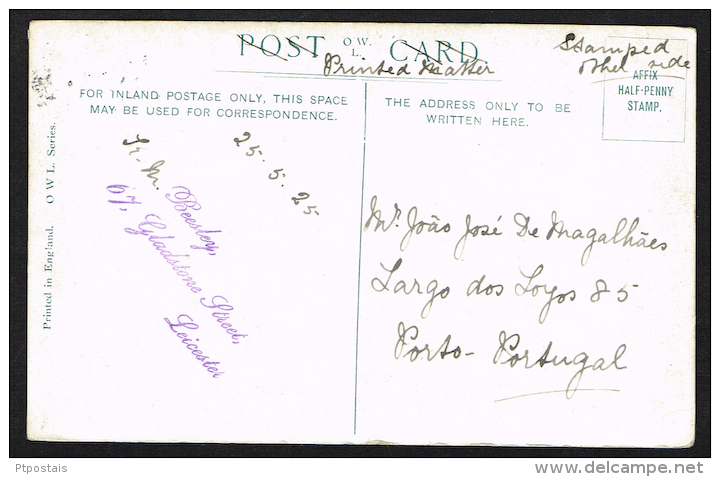 POST O W. L. CARD
Printed Matter
Stamped
other side
AFFIX
HALF-PENNY
STAMP.
FOR INLAND POSTAGE ONLY, THIS SPACE
MAY BE USED FOR CORRESPONDENCE.
THE ADDRESS ONLY TO BE
WRITTEN HERE.
Printed in England. O W L. Series.
25.5.25
Beesley,
67, Gladstone Street,
Leicester
Mr. João José De Magalhães
Largo dos Loyos 85
Porto - Portugal
Ptpostais
delcampe.net